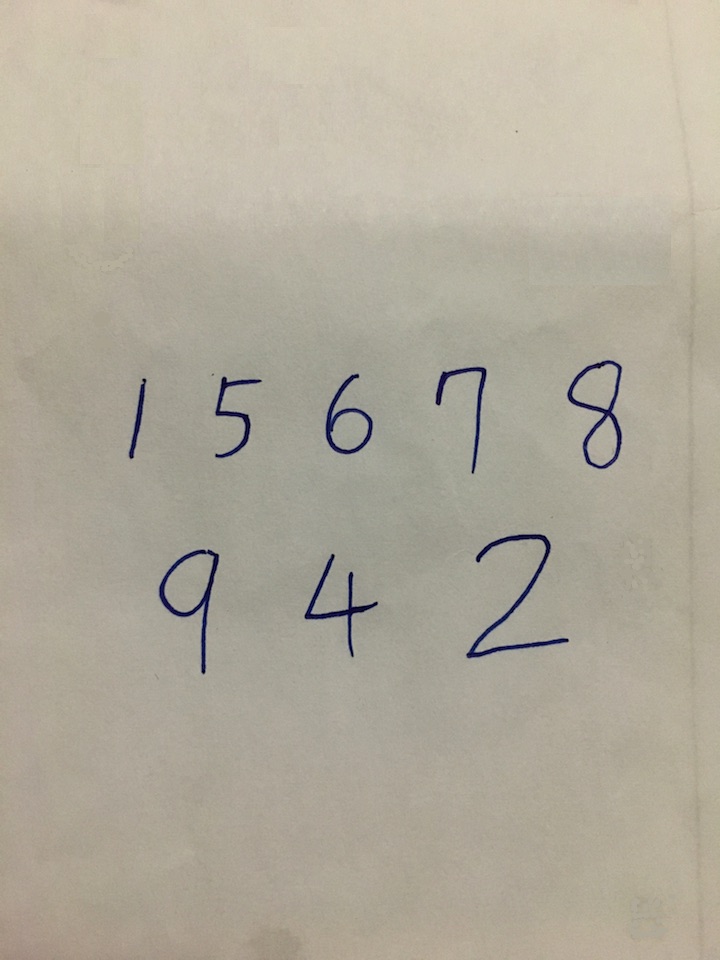 1 5 6 7 8
9 4 2